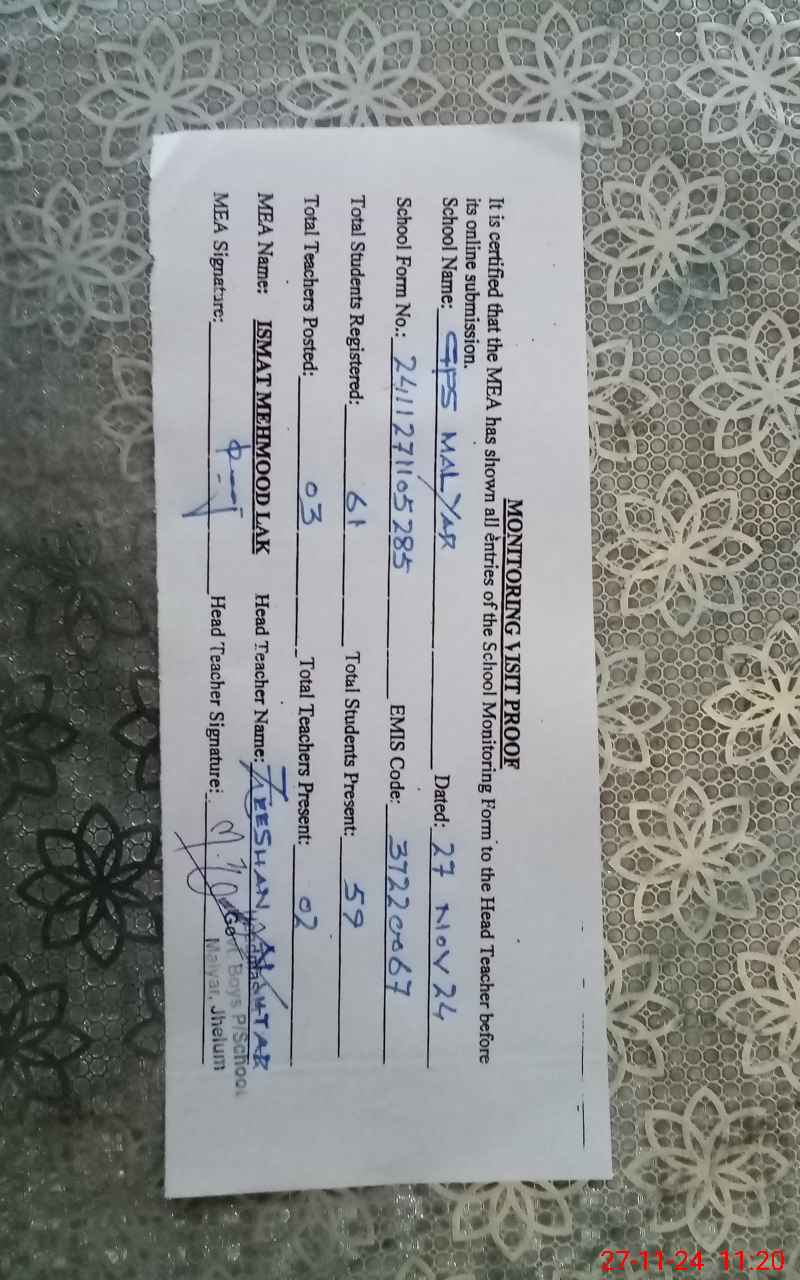 MONITORING VISIT PROOF
It is certified that the MEA has shown all entries of the School Monitoring Form to the Head Teacher before
its online submission.
School Name: GPS MALYAR Dated: 27 Nov 24
School Form No.: 241127105285 EMIS Code: 37220067
Total Students Registered: 61 Total Students Present: 59
Total Teachers Posted: 03 Total Teachers Present: 02
MEA Name: ISMAT MEHMOOD LAK Head Teacher Name: ZEESHAN
MEA Signature: Head Teacher Signature:
Govt Boys P/School
Malyar, Jhelum
27-11-24 11:20